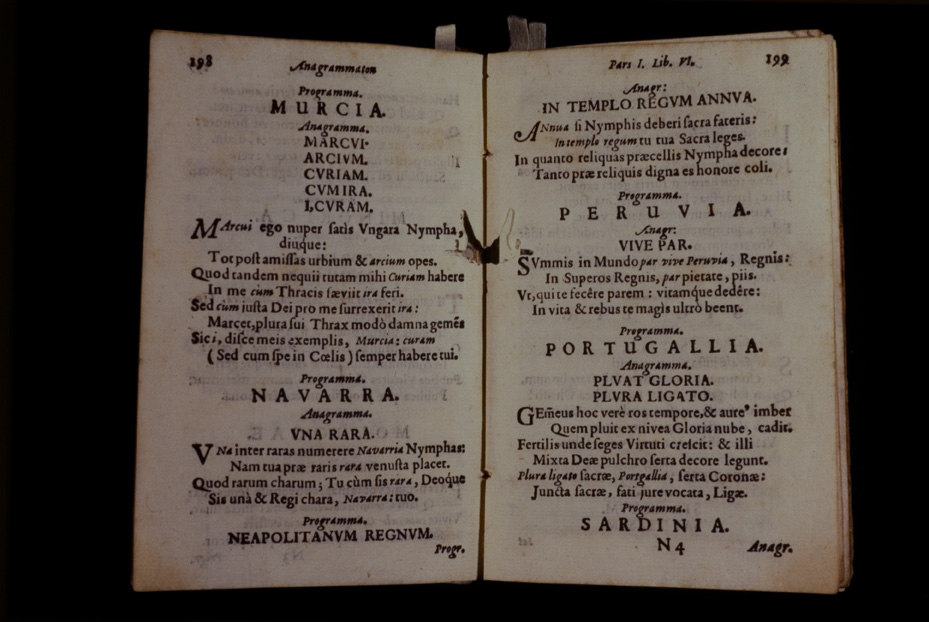 198
Anagrammaton
Programma.
MURCIA.
Anagramma.
MARCVI.
ARCIVM.
CVRIAM.
CVM IRA.
I, CVRAM.
MArcui ego nuper satis Vngara Nympha,
diuque:
Tot post amissas urbium & arcium opes.
Quod tandem nequii tutam mihi Curiam habere
In me cùm Thracis sæviit ira feri.
Sed cum justa Dei pro me surrexerit ira:
Marcet, plura sui Thrax modò damna gemẽs
Sic i, disce meis exemplis, Murcia: curam
(Sed cum spe in Cœlis) semper habere tui.
Programma.
NAVARRA.
Anagramma.
VNA RARA.
VNa inter raras numerere Navarria Nymphas:
Nam tua præ raris rara venusta placet.
Quod rarum charum; Tu cùm sis rara, Deoque
Sis unà & Regi chara, Navarra: tuo.
Programma.
NEAPOLITANVM REGNVM.
Progr.
Pars I. Lib. VI.
199
Anagr:
IN TEMPLO REGVM ANNVA.
ANnua si Nymphis deberi sacra fateris:
In templo regum tu tua Sacra leges.
In quanto reliquas præcellis Nympha decore:
Tanto præ reliquis digna es honore coli.
Programma.
PERUVIA.
Anagr:
VIVE PAR.
SVmmis in Mundo par vive Peruvia, Regnis:
In Superos Regnis, par pietate, piis.
Vt, qui te fecêre parem: vitamque dedêre:
In vita & rebus te magis ultrò beent.
Programma.
PORTUGALLIA.
Anagramma.
PLVAT GLORIA.
PLVRA LIGATO.
GEm̃eus hoc verè ros tempore, & aureꝰ imber
Quem pluit ex nivea Gloria nube, cadit.
Fertilis unde seges Virtuti crescit: & illi
Mixta Deæ pulchro serta decore legunt.
Plura ligato sacræ, Portgallia, serta Coronæ:
Juncta sacræ, fati jure vocata, Ligæ.
Programma.
SARDINIA.
N 4
Anagr.